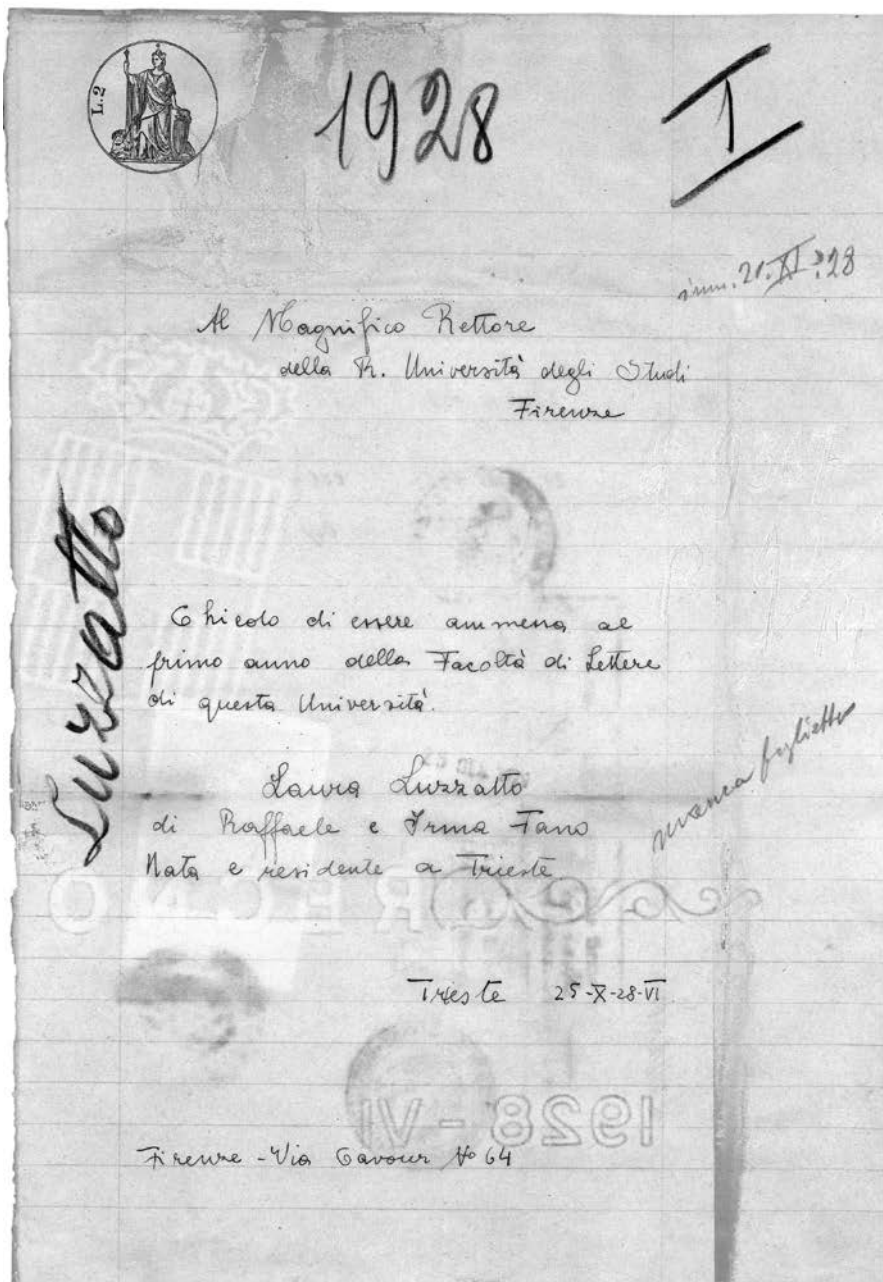 L.2
1928
I
imm. 21.XI.28
Al Magnifico Rettore
della R. Università degli Studi
Firenze
Luzzatto
Chiedo di essere ammessa al
primo anno della Facoltà di Lettere
di questa Università.
Laura Luzzatto
di Raffaele e Irma Fano
Nata e residente a Trieste.
manca foglietto
Trieste 25-X-28-VI
1928 - VI
Firenze - Via Cavour No 64